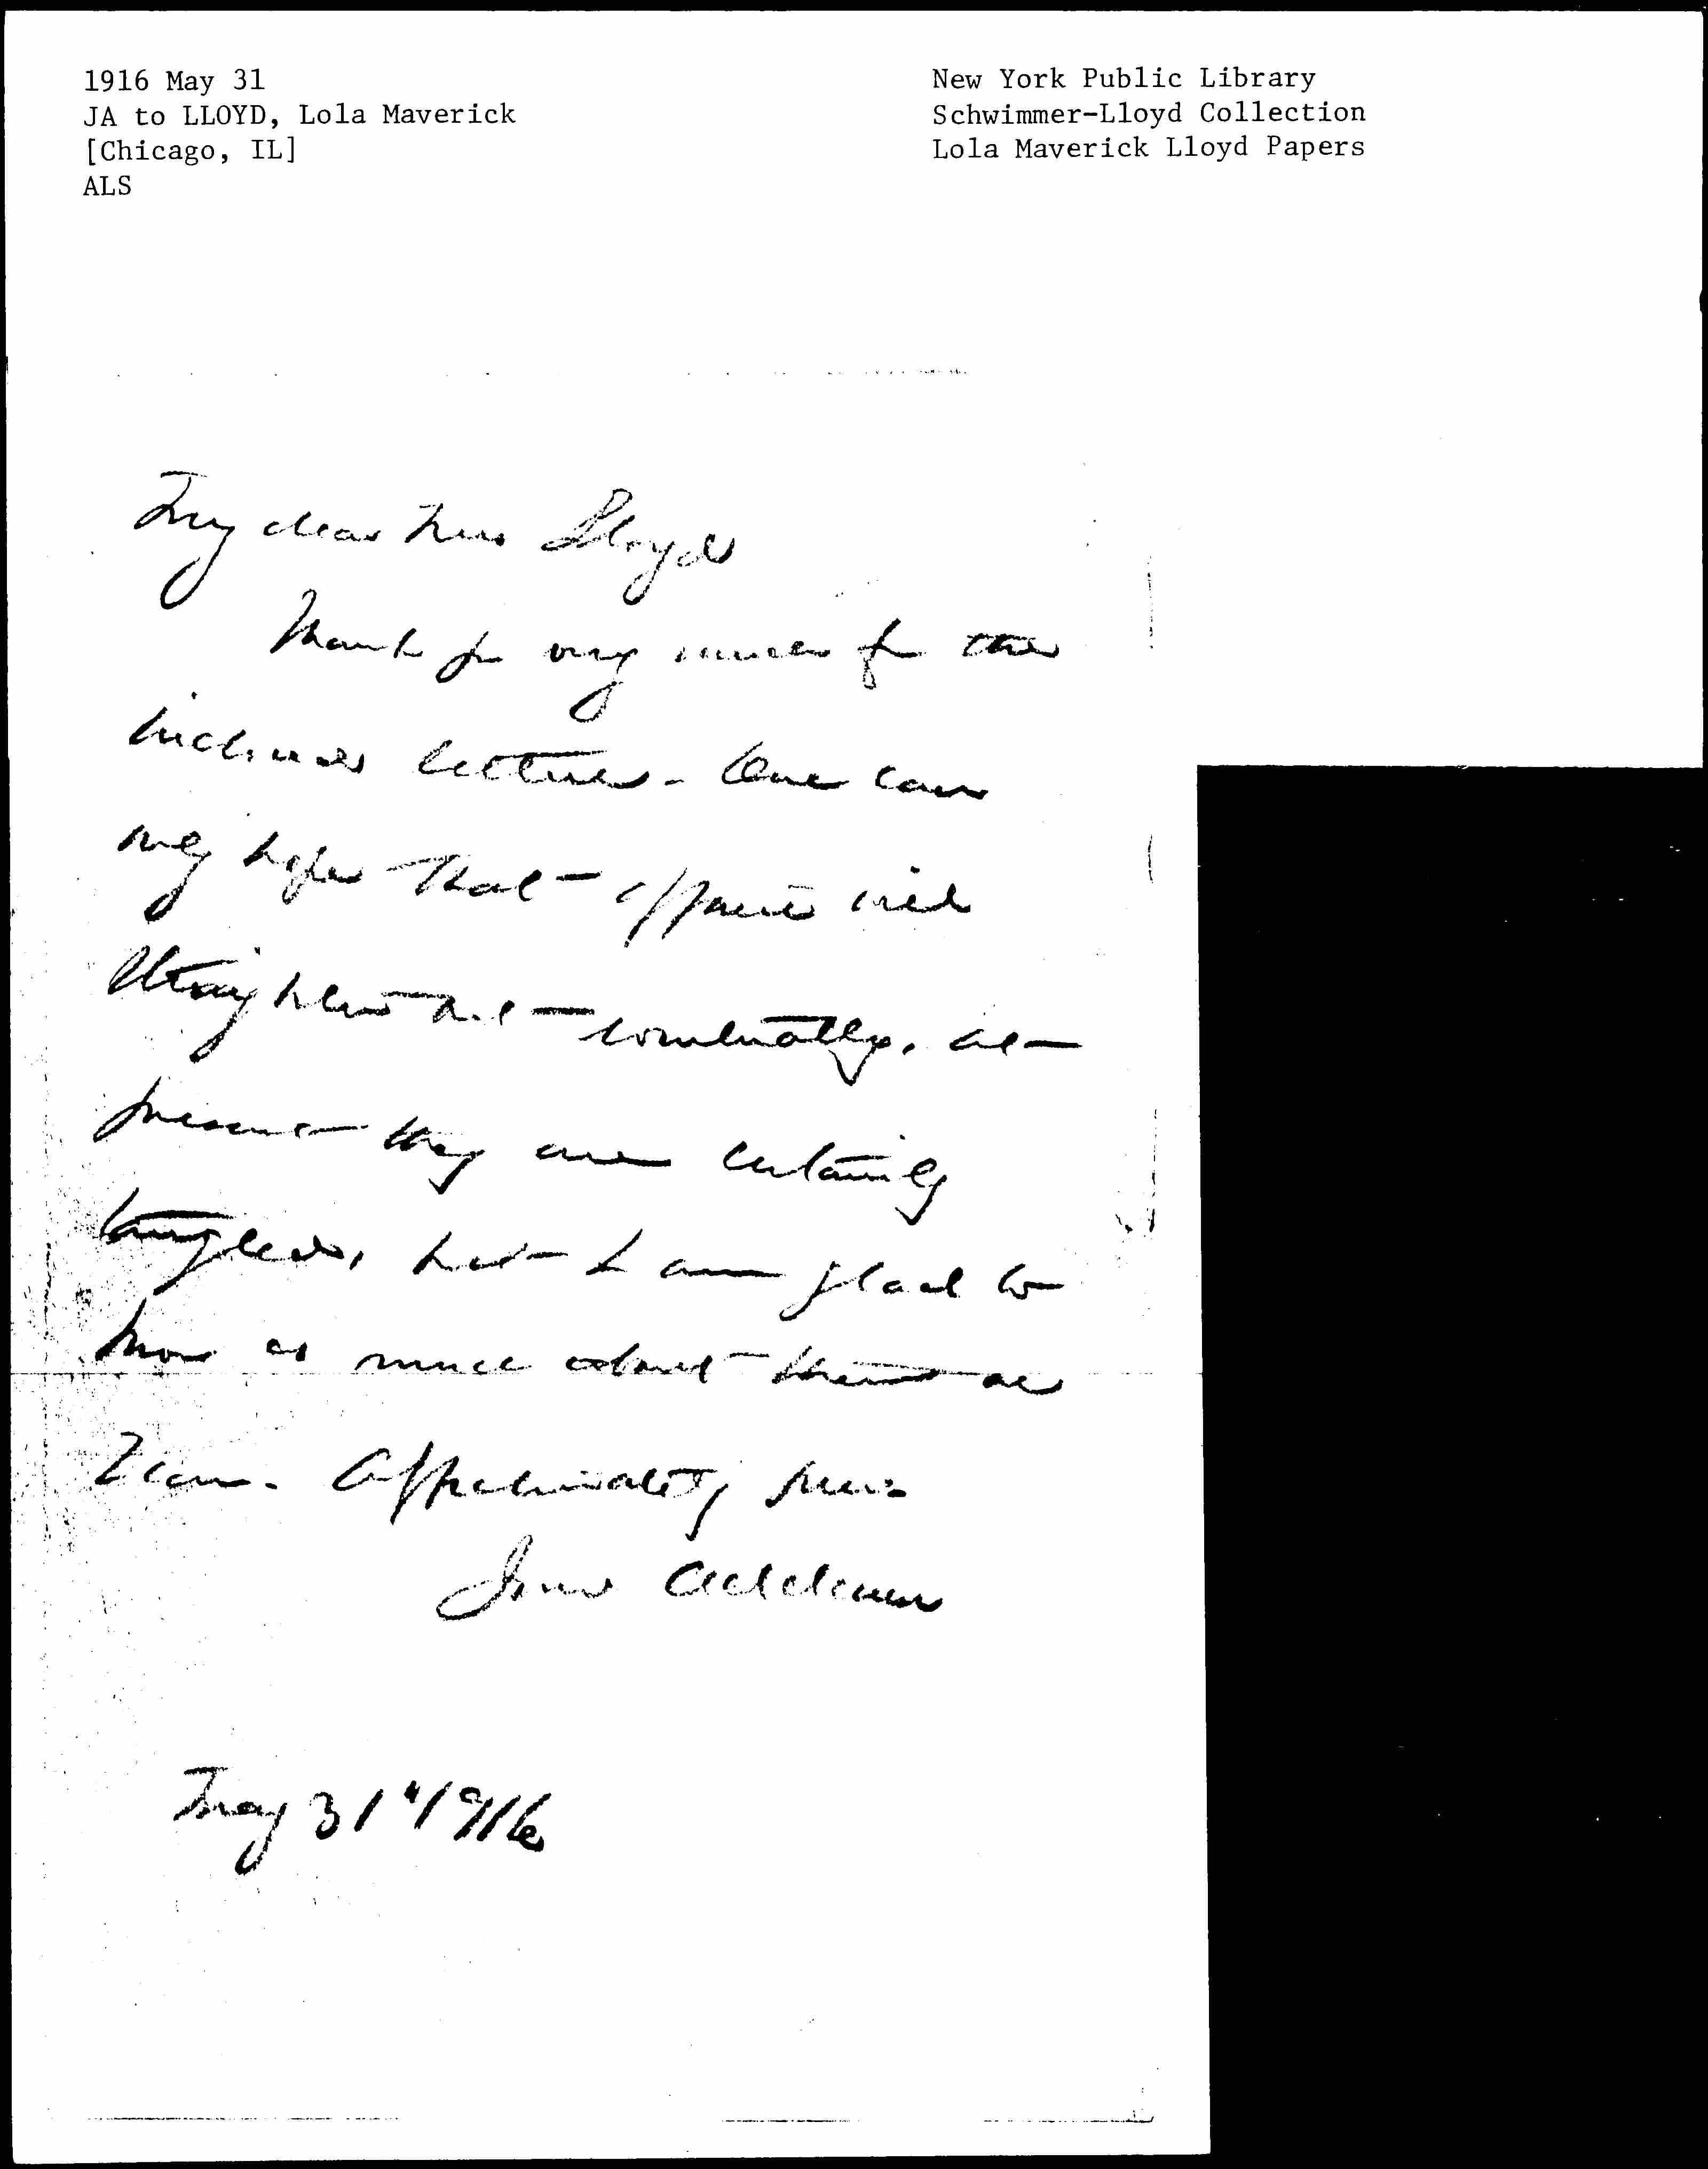 1916 May 31
JA to LLOYD, Lola Maverick
[Chicago, IL]
ALS
New York Public Library
Schwimmer-Lloyd Collection
Lola Maverick Lloyd Papers
My dear Mrs Lloyd
Thank you very much for the
inclosed letters - One can
only hope that affairs will
straighten out eventually, at
present they are certainly
tangled, but I am glad to
know as much about them as
I can. Affectionately yours
Jane Addams
May 31" 1916